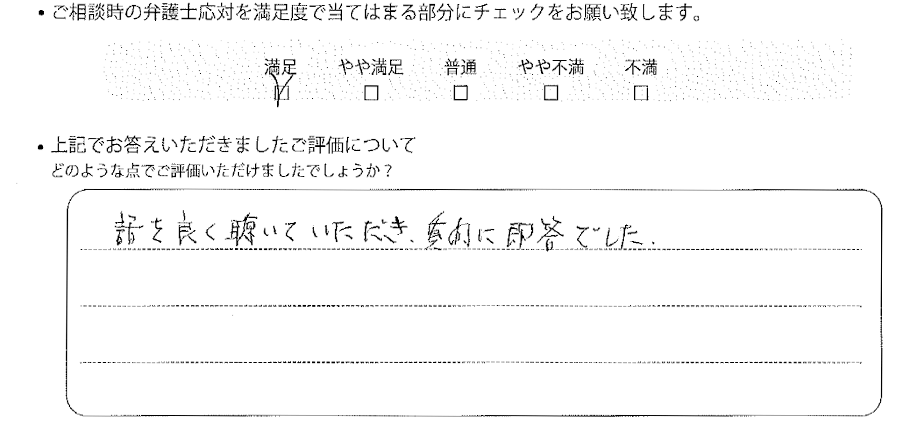 • ご相談時の弁護士応対を満足度で当てはまる部分にチェックをお願い致します。
満足 やや満足 普通 やや不満 不満
☑ □ □ □ □
• 上記でお答えいただきましたご評価について
どのような点でご評価いただけましたでしょうか？
話を良く聴いていただき、に即答でした.